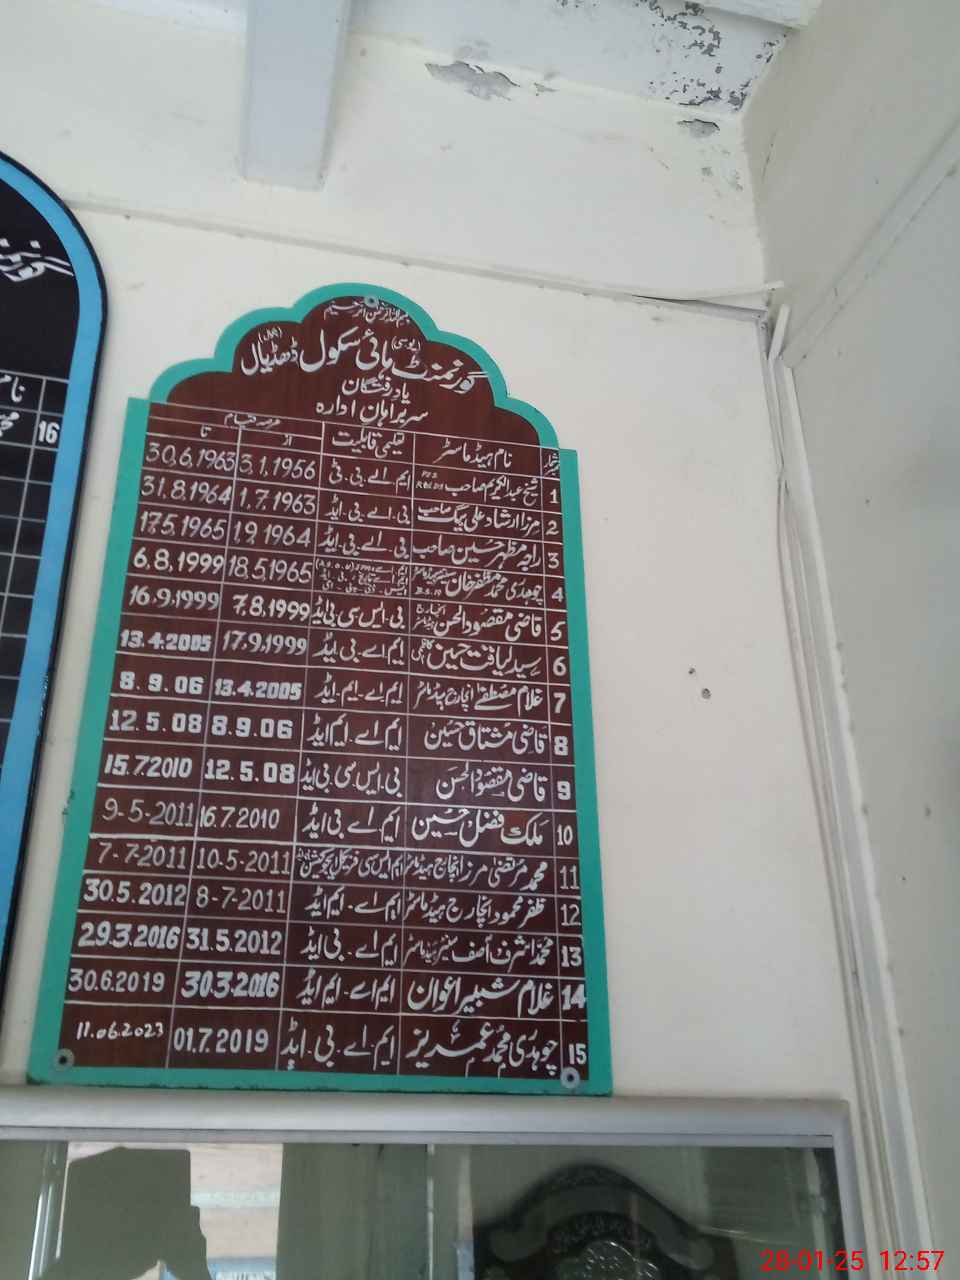 بسم اللہ الرحمن الرحیم
گورنمنٹ ہائی سکول ڈھڈیال
یاد رفتگان
سربراہان ادارہ
نمبر شمار نام ہیڈ ماسٹر تعلیمی قابلیت عرصہ قیام
از تا
1 شیخ عبدالکریم صاحب ایم اے بی ٹی 3.1.1956 30.6.1963
2 مرزا ارشاد علی بیگ صاحب بی۔اے۔بی۔ایڈ 1.7.1963 31.8.1964
3 راجہ مظہر حسین صاحب بی۔اے۔بی۔ایڈ 1.9.1964 17.5.1965
4 چوہدری محمد مظفر خان سینئر ہیڈ ماسٹر B.S.19 18.5.1965 6.8.1999
5 قاضی مقصود الحسن انچارج ہیڈ ماسٹر بی۔ایس سی۔بی ایڈ 7.8.1999 16.9.1999
6 سید لیاقت حسین کاظمی ایم اے۔بی۔ایڈ 17.9.1999 13.4.2005
7 غلام مصطفےٰ انچارج ہیڈ ماسٹر ایم اے۔ایم۔ایڈ 13.4.2005 8.9.06
8 قاضی مشتاق حسین ایم اے۔ایم ایڈ 8.9.06 12.5.08
9 قاضی مقصود الحسن بی۔ایس سی بی ایڈ 12.5.08 15.7.2010
10 ملک فضل حسین ایم اے بی ایڈ 16.7.2010 9-5-2011
11 محمد مرتضیٰ مرزا انچارج ہیڈ ماسٹر ایم ایس سی فزیکل ایجوکیشن 10-5-2011 7-7-2011
12 ظفر محمود انچارج ہیڈ ماسٹر ایم اے۔ایم ایڈ 8-7-2011 30.5.2012
13 محمد اشرف آصف سینئر ہیڈ ماسٹر ایم اے۔بی ایڈ 31.5.2012 29.3.2016
14 غلام شبیر اعوان ایم اے۔ایم ایڈ 30.3.2016 30.6.2019
15 چوہدری محمد عمریز ایم۔اے۔بی۔ایڈ 01.7.2019 11.06.2023
نام
16
28-01-25 12:57